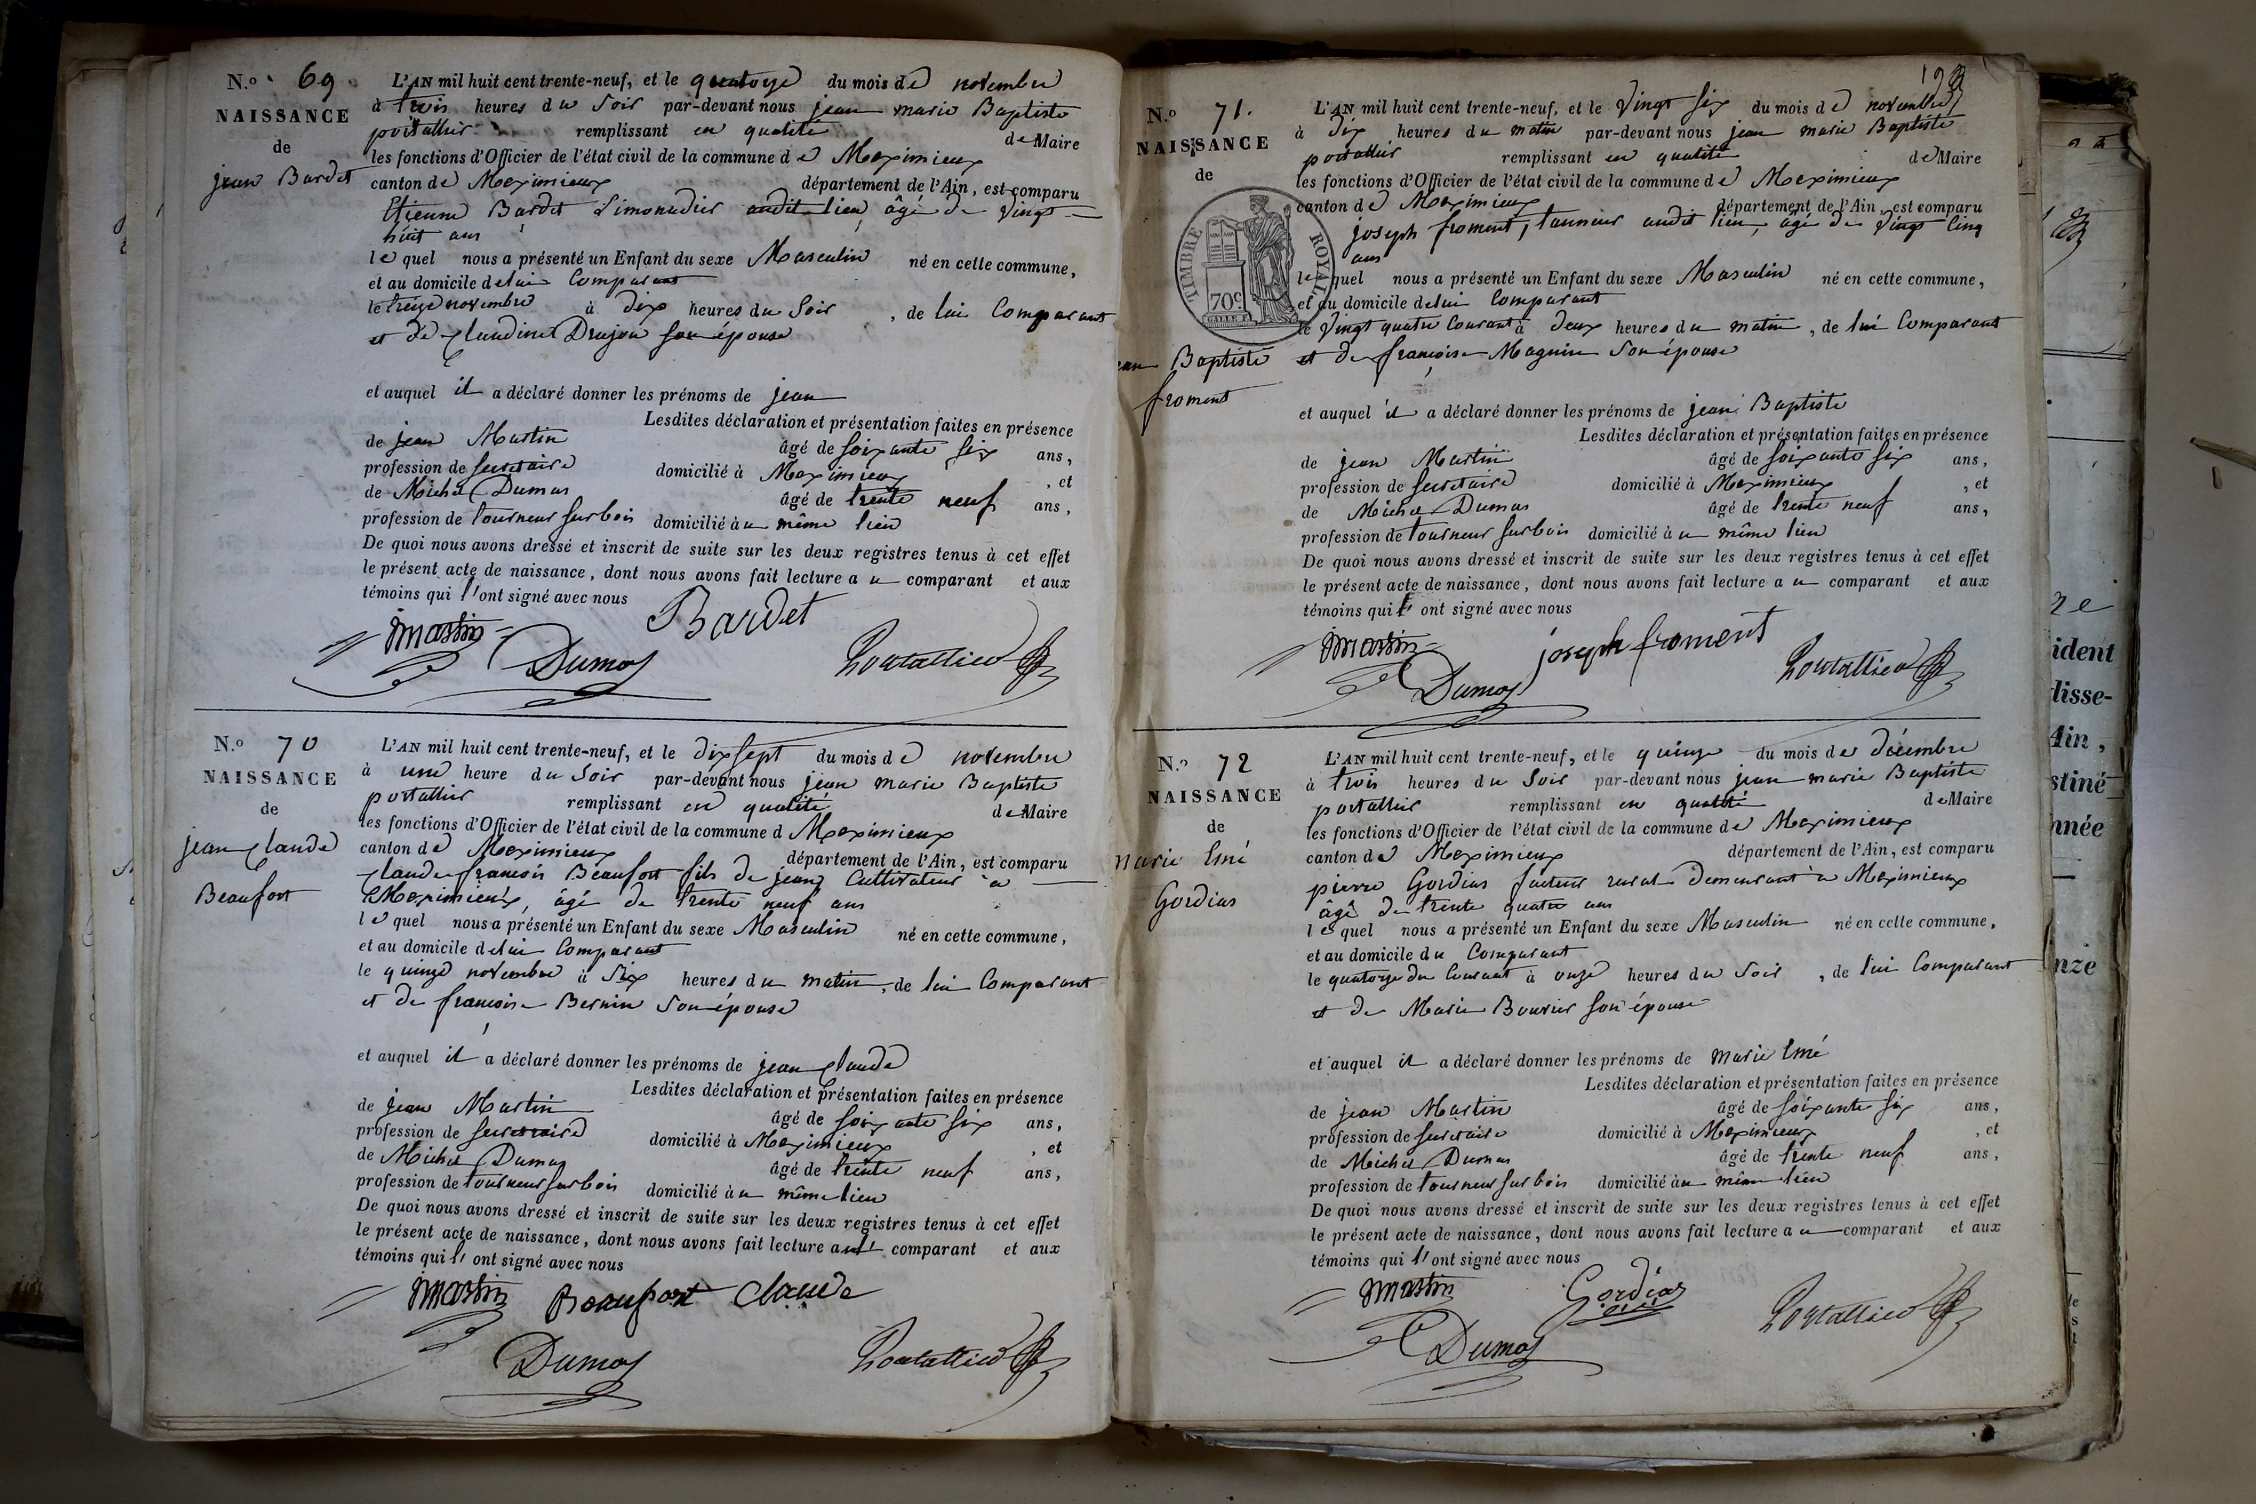 N.o 69
NAISSANCE
de
jean Bardet
L'AN mil huit cent trente-neuf, et le quatorze du mois de novembre
à trois heures du Soir par-devant nous jean marie Baptiste
portallier remplissant en qualité de Maire
les fonctions d'Officier de l'état civil de la commune de Meximieux
canton de Meximieux département de l'Ain, est comparu
Etienne Bardet Limonadier audit lieu, âgé de vingt
huit ans
lequel nous a présenté un Enfant du sexe Masculin né en cette commune,
et au domicile de lui Comparant
le treize novembre à dix heures du Soir, de lui Comparant
et de Claudine Drujon son épouse
et auquel il a déclaré donner les prénoms de jean
Lesdites déclaration et présentation faites en présence
de jean Martin âgé de soixante six ans,
profession de secretaire domicilié à Meximieux, et
de Michel Dumas âgé de trente neuf ans,
profession de tourneur sur bois domicilié au même lieu
De quoi nous avons dressé et inscrit de suite sur les deux registres tenus à cet effet
le présent acte de naissance, dont nous avons fait lecture au comparant et aux
témoins qui l'ont signé avec nous
Bardet
jmartin
Dumas
Portallier
N.o 70
NAISSANCE
de
jean Claude
Beaufort
L'AN mil huit cent trente-neuf, et le dix sept du mois de novembre
à une heure du Soir par-devant nous jean marie Baptiste
portallier remplissant en qualité de Maire
les fonctions d'Officier de l'état civil de la commune d Meximieux
canton de Meximieux département de l'Ain, est comparu
Claude françois Beaufort fils de jean, Cultivateur à
Meximieux, âgé de trente neuf ans
lequel nous a présenté un Enfant du sexe Masculin né en cette commune,
et au domicile de lui Comparant
le quinze novembre à Six heures du matin, de lui Comparant
et de françoise Bernin Son épouse
et auquel il a déclaré donner les prénoms de jean Claude
Lesdites déclaration et présentation faites en présence
de jean Martin âgé de soixante six ans,
profession de secretaire domicilié à Meximieux, et
de Michel Dumas âgé de trente neuf ans,
profession de tourneur sur bois domicilié au même lieu
De quoi nous avons dressé et inscrit de suite sur les deux registres tenus à cet effet
le présent acte de naissance, dont nous avons fait lecture au comparant et aux
témoins qui l'ont signé avec nous
jmartin Beaufort Claude
Dumas Portallier
N.o 71.
NAISSANCE
de
TIMBRE ROYAL
70c
jean Baptiste
froment
L'AN mil huit cent trente-neuf, et le Vingt six du mois de novembre
à dix heures du matin par-devant nous jean marie Baptiste
portallier remplissant en qualité de Maire
les fonctions d'Officier de l'état civil de la commune de Meximieux
canton de Meximieux département de l'Ain, est comparu
joseph froment, tanneur audit lieu, âgé de Vingt Cinq
ans
lequel nous a présenté un Enfant du sexe Masculin né en cette commune,
et au domicile de lui Comparant
le Vingt quatre Courant à deux heures du matin, de lui Comparant
et de françoise Magnin Son épouse
et auquel il a déclaré donner les prénoms de jean Baptiste
Lesdites déclaration et présentation faites en présence
de jean Martin âgé de soixante six ans,
profession de secretaire domicilié à Meximieux, et
de Michel Dumas âgé de trente neuf ans,
profession de tourneur sur bois domicilié au même lieu
De quoi nous avons dressé et inscrit de suite sur les deux registres tenus à cet effet
le présent acte de naissance, dont nous avons fait lecture au comparant et aux
témoins qui l'ont signé avec nous
jmartin joseph froment
Dumas Portallier
N.o 72
NAISSANCE
de
marie Emé
Gordias
L'AN mil huit cent trente-neuf, et le quinze du mois de décembre
à trois heures du Soir par-devant nous jean marie Baptiste
portallier remplissant en qualité de Maire
les fonctions d'Officier de l'état civil de la commune de Meximieux
canton de Meximieux département de l'Ain, est comparu
pierre Gordias facteur rural demeurant à Meximieux
âgé de trente quatre ans
lequel nous a présenté un Enfant du sexe Masculin né en cette commune,
et au domicile du Comparant
le quatorze du Courant à onze heures du Soir, de lui Comparant
et de Marie Bouvier son épouse
et auquel il a déclaré donner les prénoms de marie Emé
Lesdites déclaration et présentation faites en présence
de jean Martin âgé de soixante six ans,
profession de secretaire domicilié à Meximieux, et
de Michel Dumas âgé de trente neuf ans,
profession de tourneur sur bois domicilié au même lieu
De quoi nous avons dressé et inscrit de suite sur les deux registres tenus à cet effet
le présent acte de naissance, dont nous avons fait lecture au comparant et aux
témoins qui l'ont signé avec nous
jmartin Gordias
Dumas Portallier
ident
lisse-
Ain,
stiné
nnée
nze